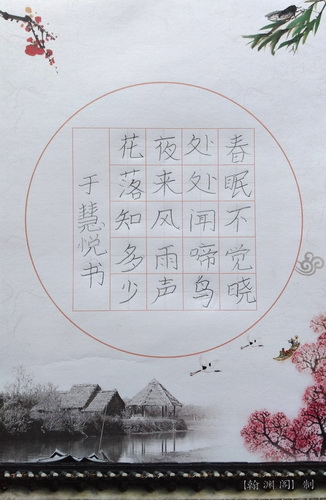 春眠不觉晓
处处闻啼鸟
夜来风雨声
花落知多少
于慧悦书
【翰渊阁】制